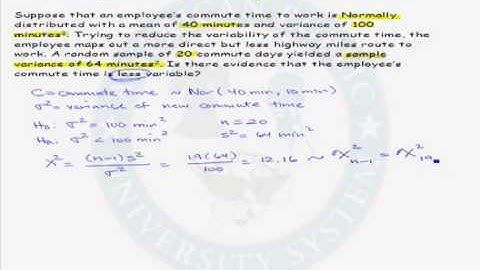 Suppose that an employee's commute time to work is Normally
distributed with a mean of 40 minutes and variance of 100
minutes². Trying to reduce the variability of the commute time, the
employee maps out a more direct but less highway miles route to
work. A random sample of 20 commute days yielded a sample
variance of 64 minutes². Is there evidence that the employee's
commute time is less variable?
C = commute time ~ Nor (40 min, 10 min)
σ² = variance of new commute time
H₀: σ² = 100 min² n = 20
Hₐ: σ² < 100 min² s² = 64 min²
X² = (n-1)s² / σ² = 19(64) / 100 = 12.16 ~ X²ₙ₋₁ = X²₁₉
UNIVERSITY SYSTEM